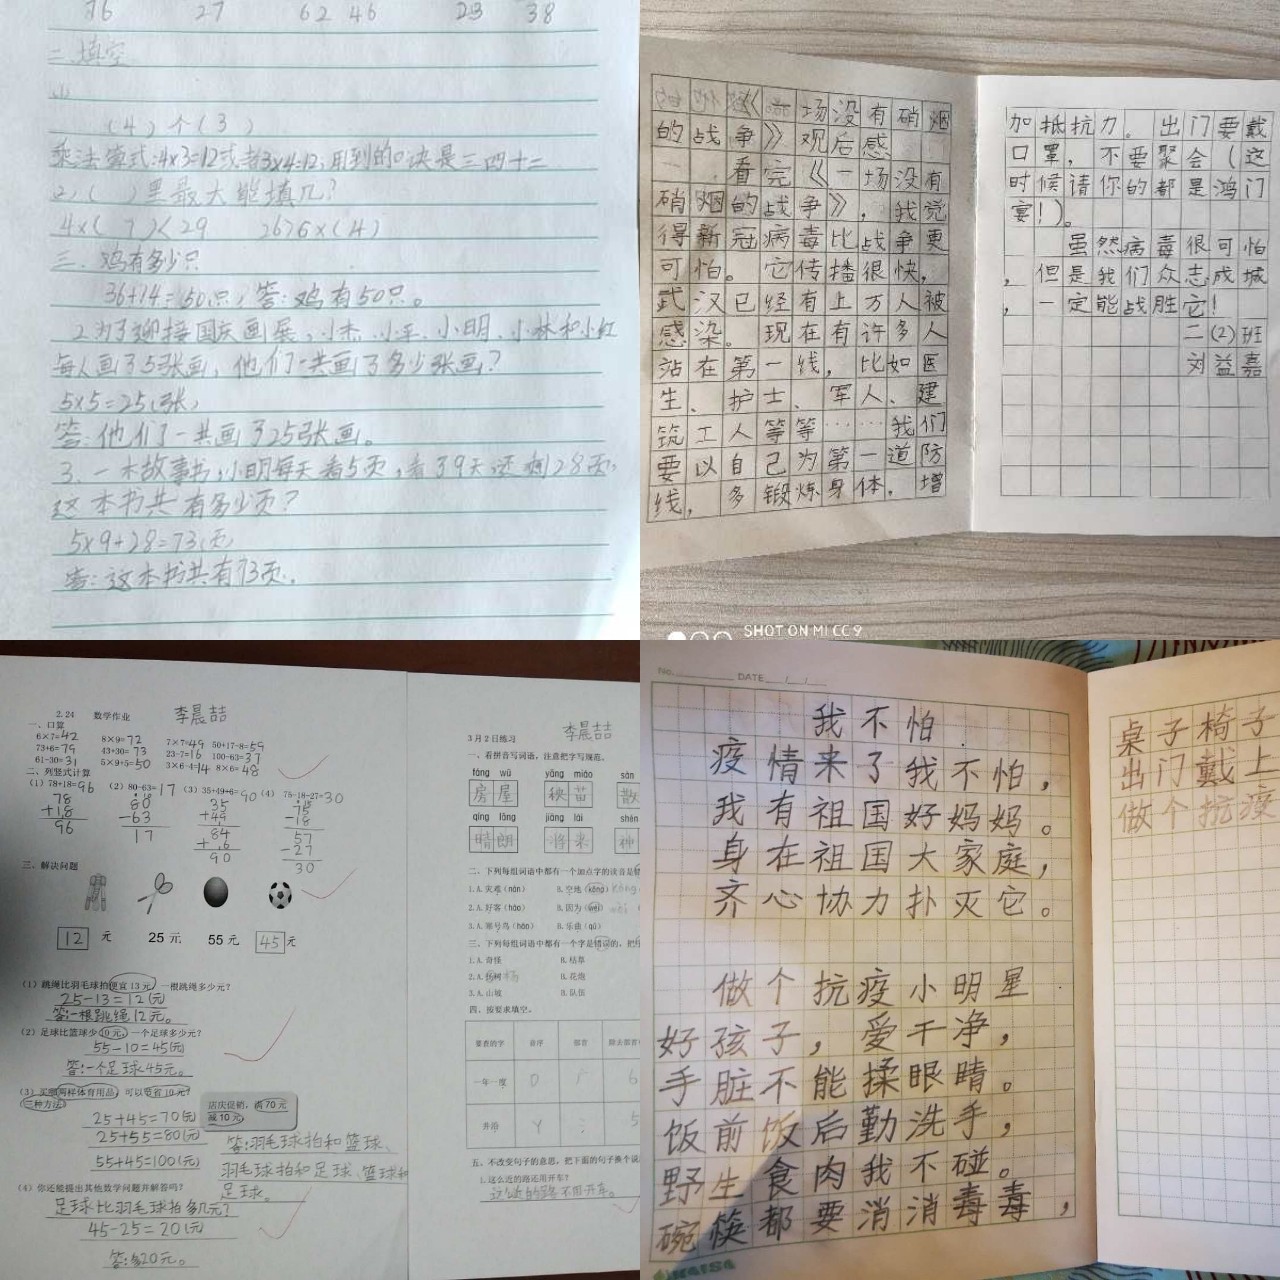 76 27 62 46 23 38
二.填空
(1)
(4)个(3)
乘法算式:4×3=12或者3×4=12,用到的口诀是三四十二
2.( )里最大能填几?
4×(7)<29 26>6×(4)
三.鸡有多少只
36+14=50(只) 答:鸡有50只。
2.为了迎接国庆画展,小杰、小军、小明、小林和小红
每人画了5张画,他们一共画了多少张画?
5×5=25(张)
答:他们了一共画了25张画。
3.一本故事书,小明每天看5页,看了9天还剩28页,
这本书共有多少页?
5×9+28=73(页)
答:这本书共有73页。
《一场没有硝烟
的战争》观后感
看完《一场没有
硝烟的战争》,我觉
得新冠病毒比战争更
可怕。它传播很快,
武汉已经有上万人被
感染。现在有许多人
站在第一线,比如医
生、护士、军人、建
筑工人等等……我们
要以自己为第一道防
线,多锻炼身体,增
加抵抗力。出门要戴
口罩,不要聚会(这
时候请你的都是鸿门
宴!)。
虽然病毒很可怕
,但是我们众志成城
,一定能战胜它!
二(2)班
刘益嘉
SHOT ON MI CC9
2.24 数学作业 李晨喆
一、口算
6×7=42 8×9=72 7×7=49 50+17-8=59
73+6=79 43+30=73 23-7=16 100-63=37
61-30=31 5×9+5=50 3×6-4=14 8×6=48
二、列竖式计算
(1)78+18=96 (2)80-63=17 (3)35+49+6=90 (4)75-18-27=30
78 80 35 75
+18 -63 +49 -18
96 17 84 57
+6 -27
90 30
三、解决问题
12元 25元 55元 45元
(1)跳绳比羽毛球拍便宜13元,一根跳绳多少元?
25-13=12(元)
答:一根跳绳12元。
(2)足球比篮球少10元,一个足球多少元?
55-10=45(元)
答:一个足球45元。
(3)买哪两样体育用品,可以节省10元?
(三种方法)
店庆促销,满70元
减10元
25+45=70(元)
25+55=80(元)
55+45=100(元)
答:羽毛球拍和篮球、
羽毛球拍和足球、篮球和
足球。
(4)你还能提出其他数学问题并解答吗?
足球比羽毛球拍多几元?
45-25=20(元)
答:多20元。
李晨喆
3月2日练习
一、看拼音写词语,注意把字写规范。
fáng wū yāng miáo sàn
房屋 秧苗 散
qíng lǎng jiāng lái shén
晴朗 将来 神
二、下列每组词语中都有一个加点字的读音是错
1.A.灾难(nàn) B.空地(kōng)
2.A.好客(hào) B.因为(wéi)
3.A.寒号鸟(háo) B.乐曲(qǔ)
三、下列每组词语中都有一个字是错误的,把
1.A.奇怪 B.枯草
2.A. B.花炮
3.A.山坡 B.队伍
四、按要求填空。
要查的字 音序 部首 除去部首
一年一度 D 广 6
井沿 Y 氵 5
五、不改变句子的意思,把下面的句子换个说
1.这么近的路还用开车?
这么近的路不用开车。
No. DATE / /
我不怕
疫情来了我不怕,
我有祖国好妈妈。
身在祖国大家庭,
齐心协力扑灭它。
做个抗疫小明星
好孩子,爱干净,
手脏不能揉眼睛。
饭前饭后勤洗手,
野生食肉我不碰。
碗筷都要消消毒毒,
桌子椅子
出门戴上
做个抗疫